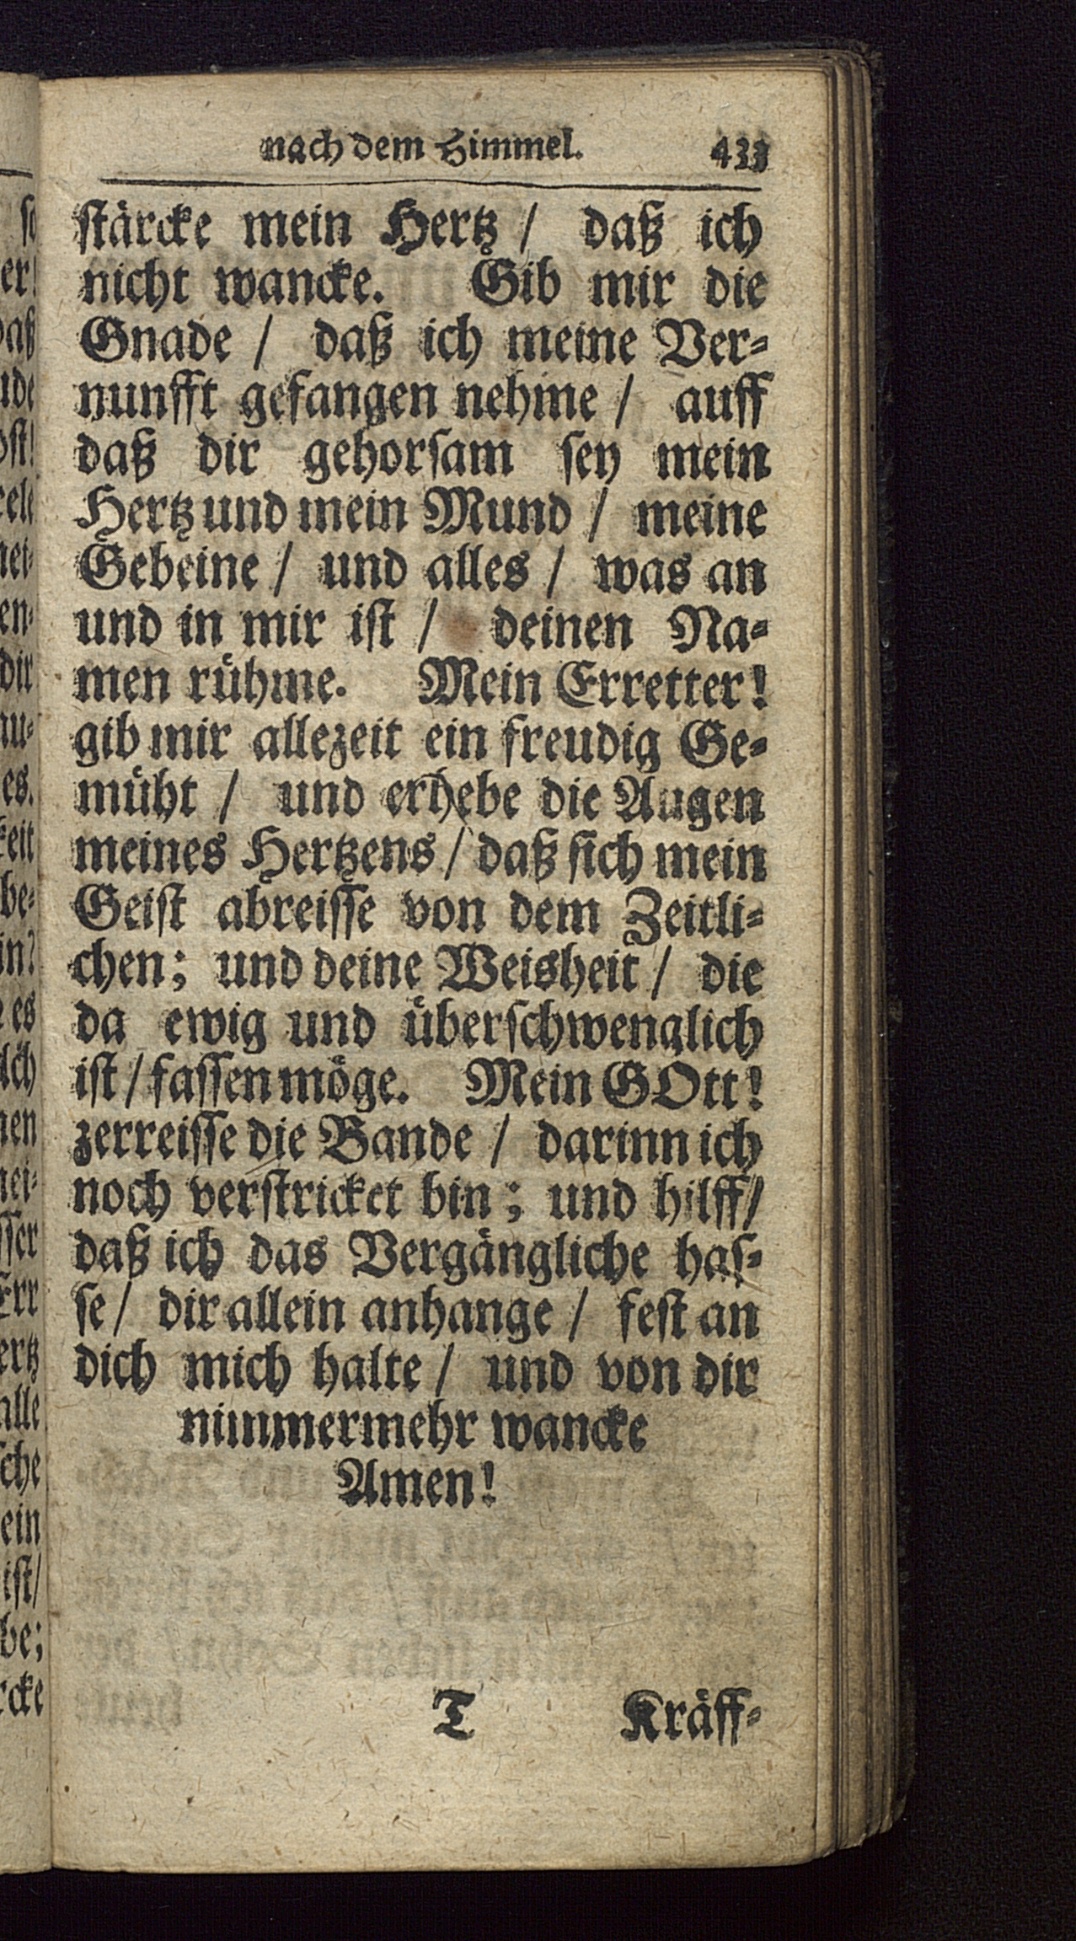 nach dem Himmel. 433
stärcke mein Hertz / daß ich
nicht wancke. Gib mir die
Gnade / daß ich meine Ver⸗
nunfft gefangen nehme / auff
daß dir gehorsam sey mein
Hertz und mein Mund / meine
Gebeine / und alles / was an
und in mir ist / deinen Na⸗
men rühme. Mein Erretter!
gib mir allezeit ein freudig Ge⸗
müht / und erhebe die Augen
meines Hertzens / daß sich mein
Geist abreisse von dem Zeitli⸗
chen; und deine Weisheit / die
da ewig und überschwenglich
ist / fassen möge. Mein GOtt!
zerreisse die Bande / darinn ich
noch verstricket bin; und hilff/
daß ich das Vergängliche has⸗
se / dir allein anhange / fest an
dich mich halte / und von dir
nimmermehr wancke
Amen!
T Kräff⸗